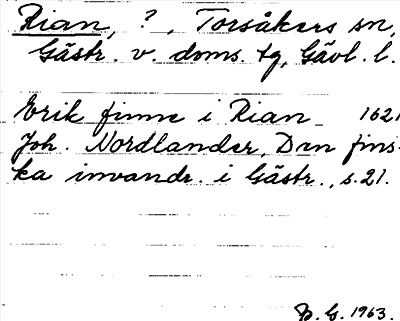 Rian, ?, Torsåkers sn,
Gästr. v. doms. tg, Gävl. l.
Erik finne i Rian 1621
Joh. Nordlander, Den fins-
ka invandr. i Gästr., s. 21.
B. G. 1963.